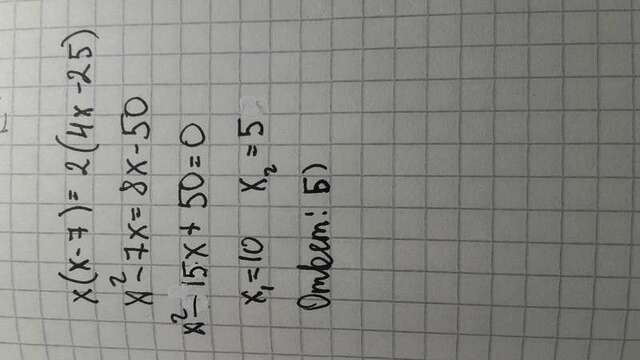 x(x-7)=2(4x-25)
x²-7x=8x-50
x²-15x+50=0
x₁=10 x₂=5
Ответ: Б)